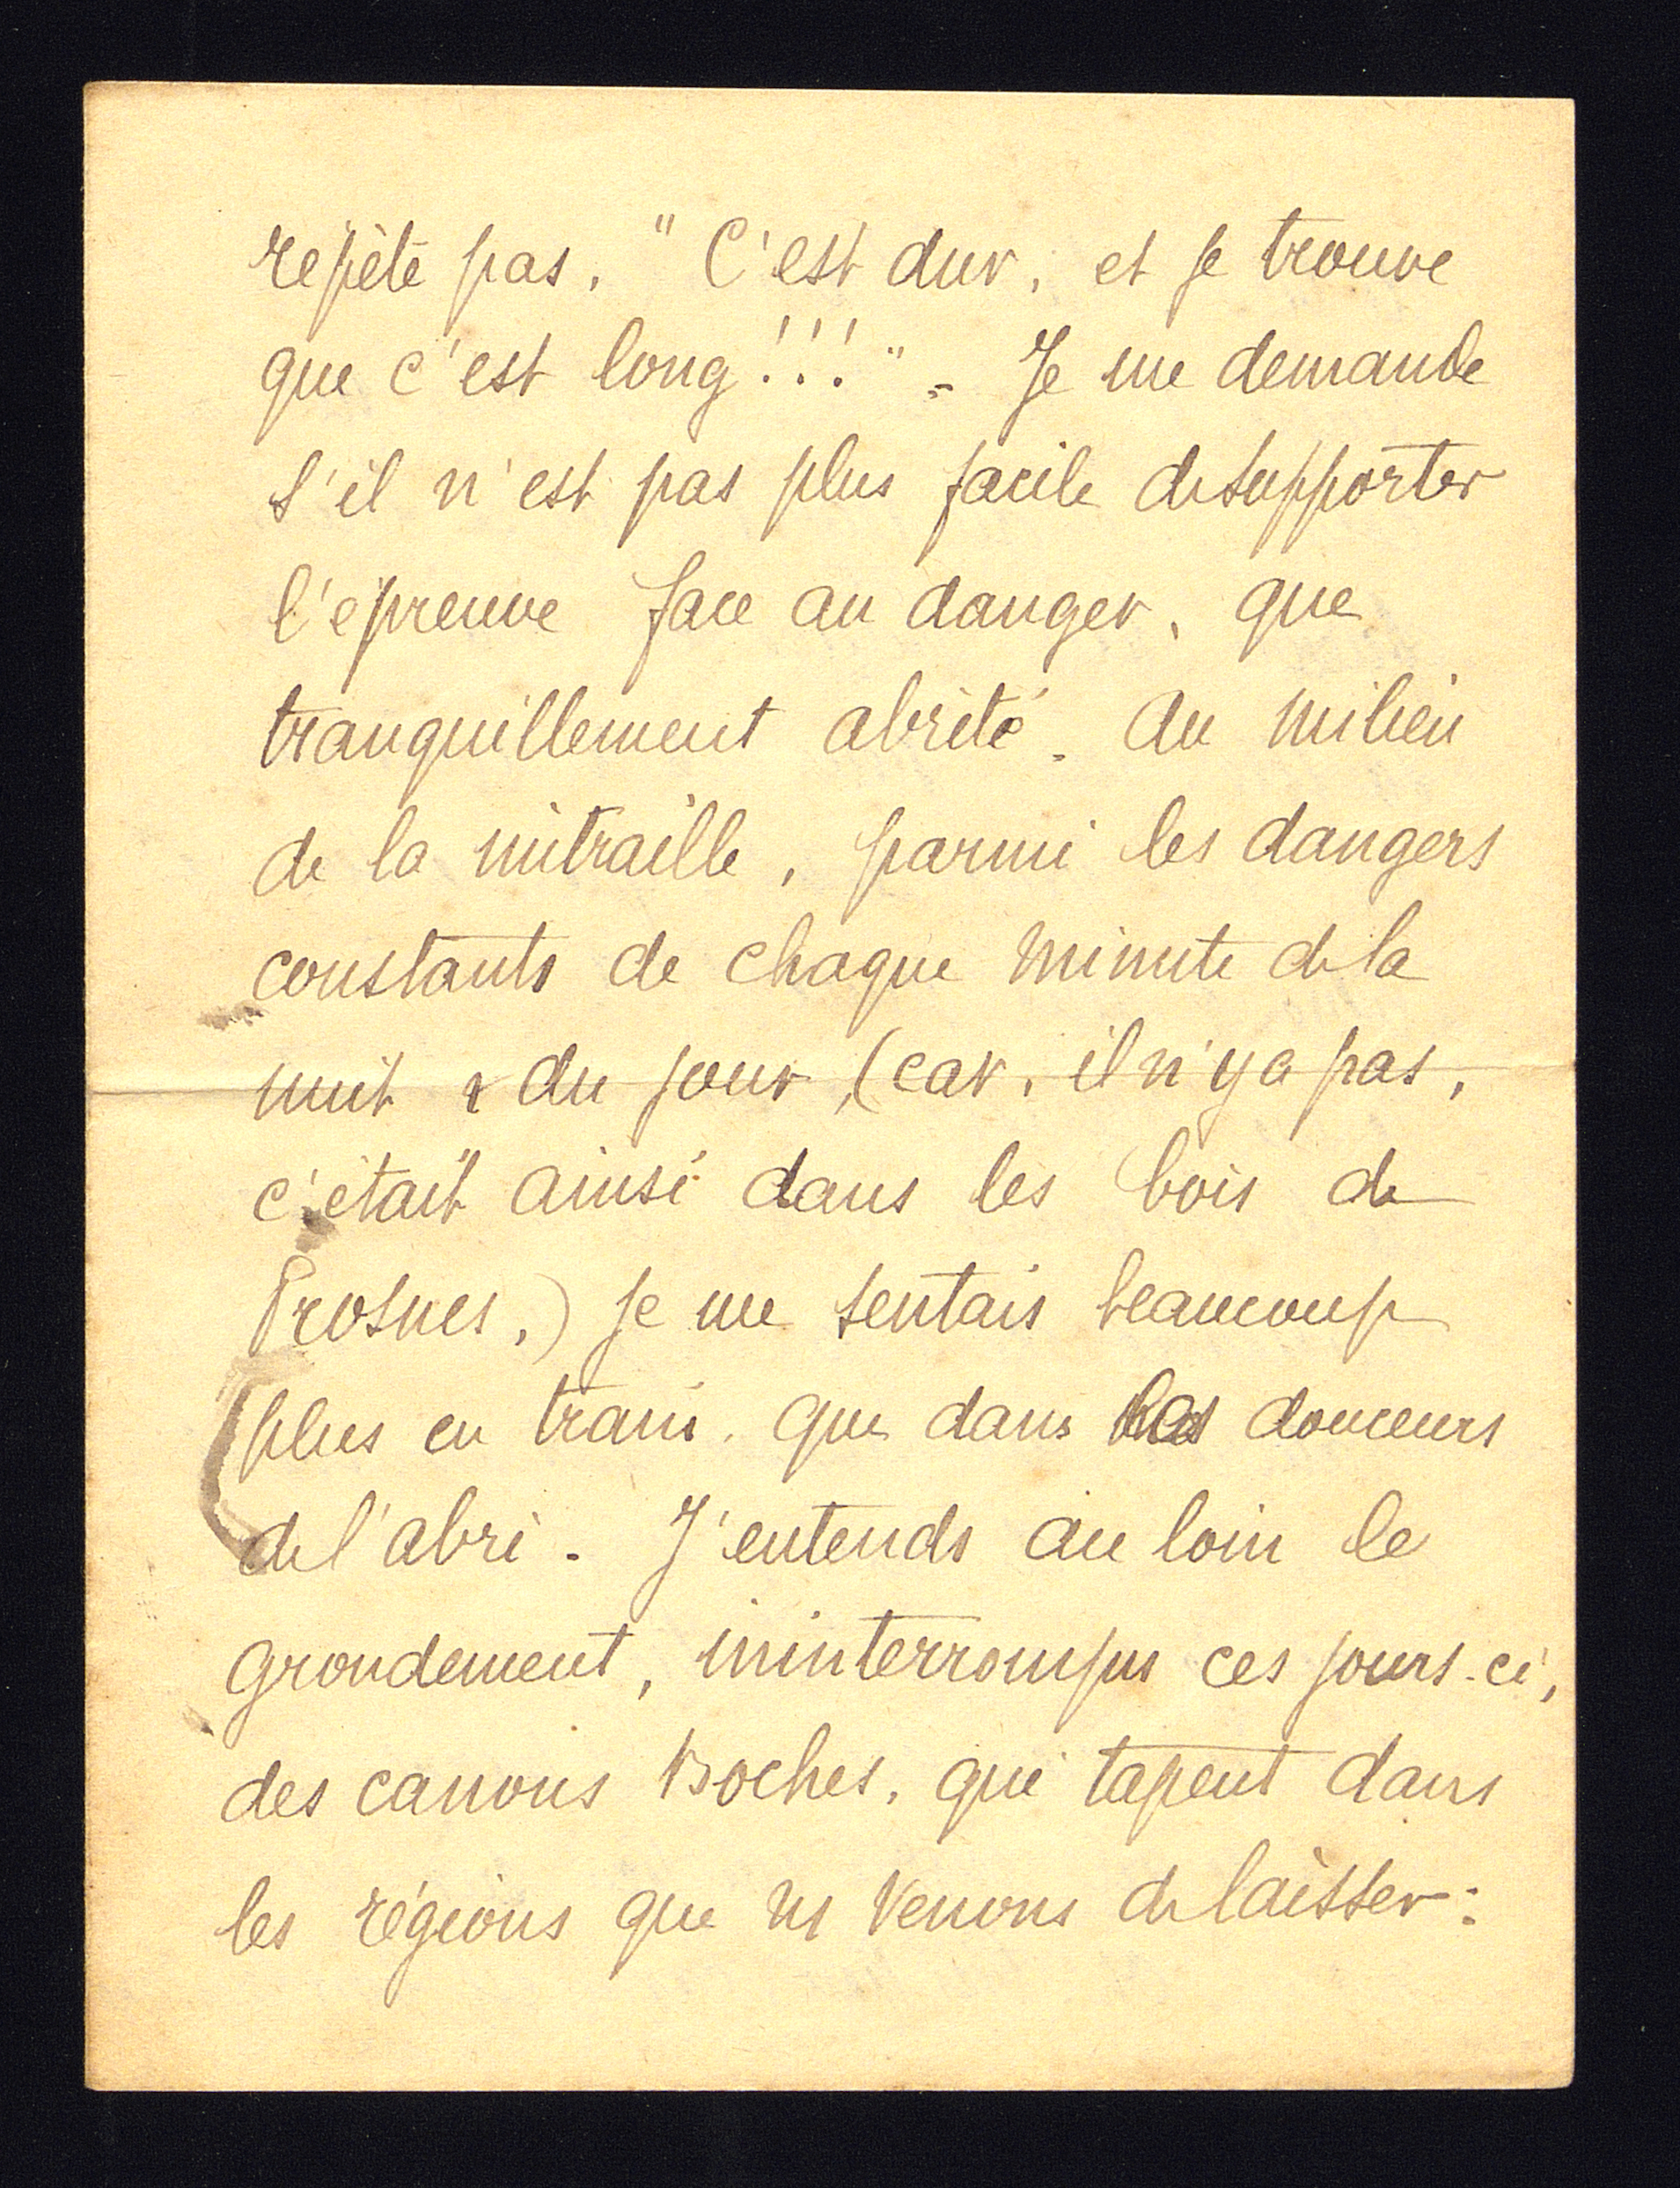 répète pas. " C'est dur, et je trouve
que c'est long!!!" - Je me demande
s'il n'est pas plus facile de supporter
l'épreuve face au danger, que
tranquillement abrité. Au milieu
de la mitraille, parmi les dangers
constants de chaque minute de la
nuit & du jour, (car, il n'y a pas,
c'était ainsi dans les bois de
Prosnes,) je me sentais beaucoup
plus en train, que dans les douceurs
de l'abri. J'entends au loin le
grondement, ininterrompus ces jours-ci,
des canons Boches, qui tapent dans
les régions que ns venons de laisser: